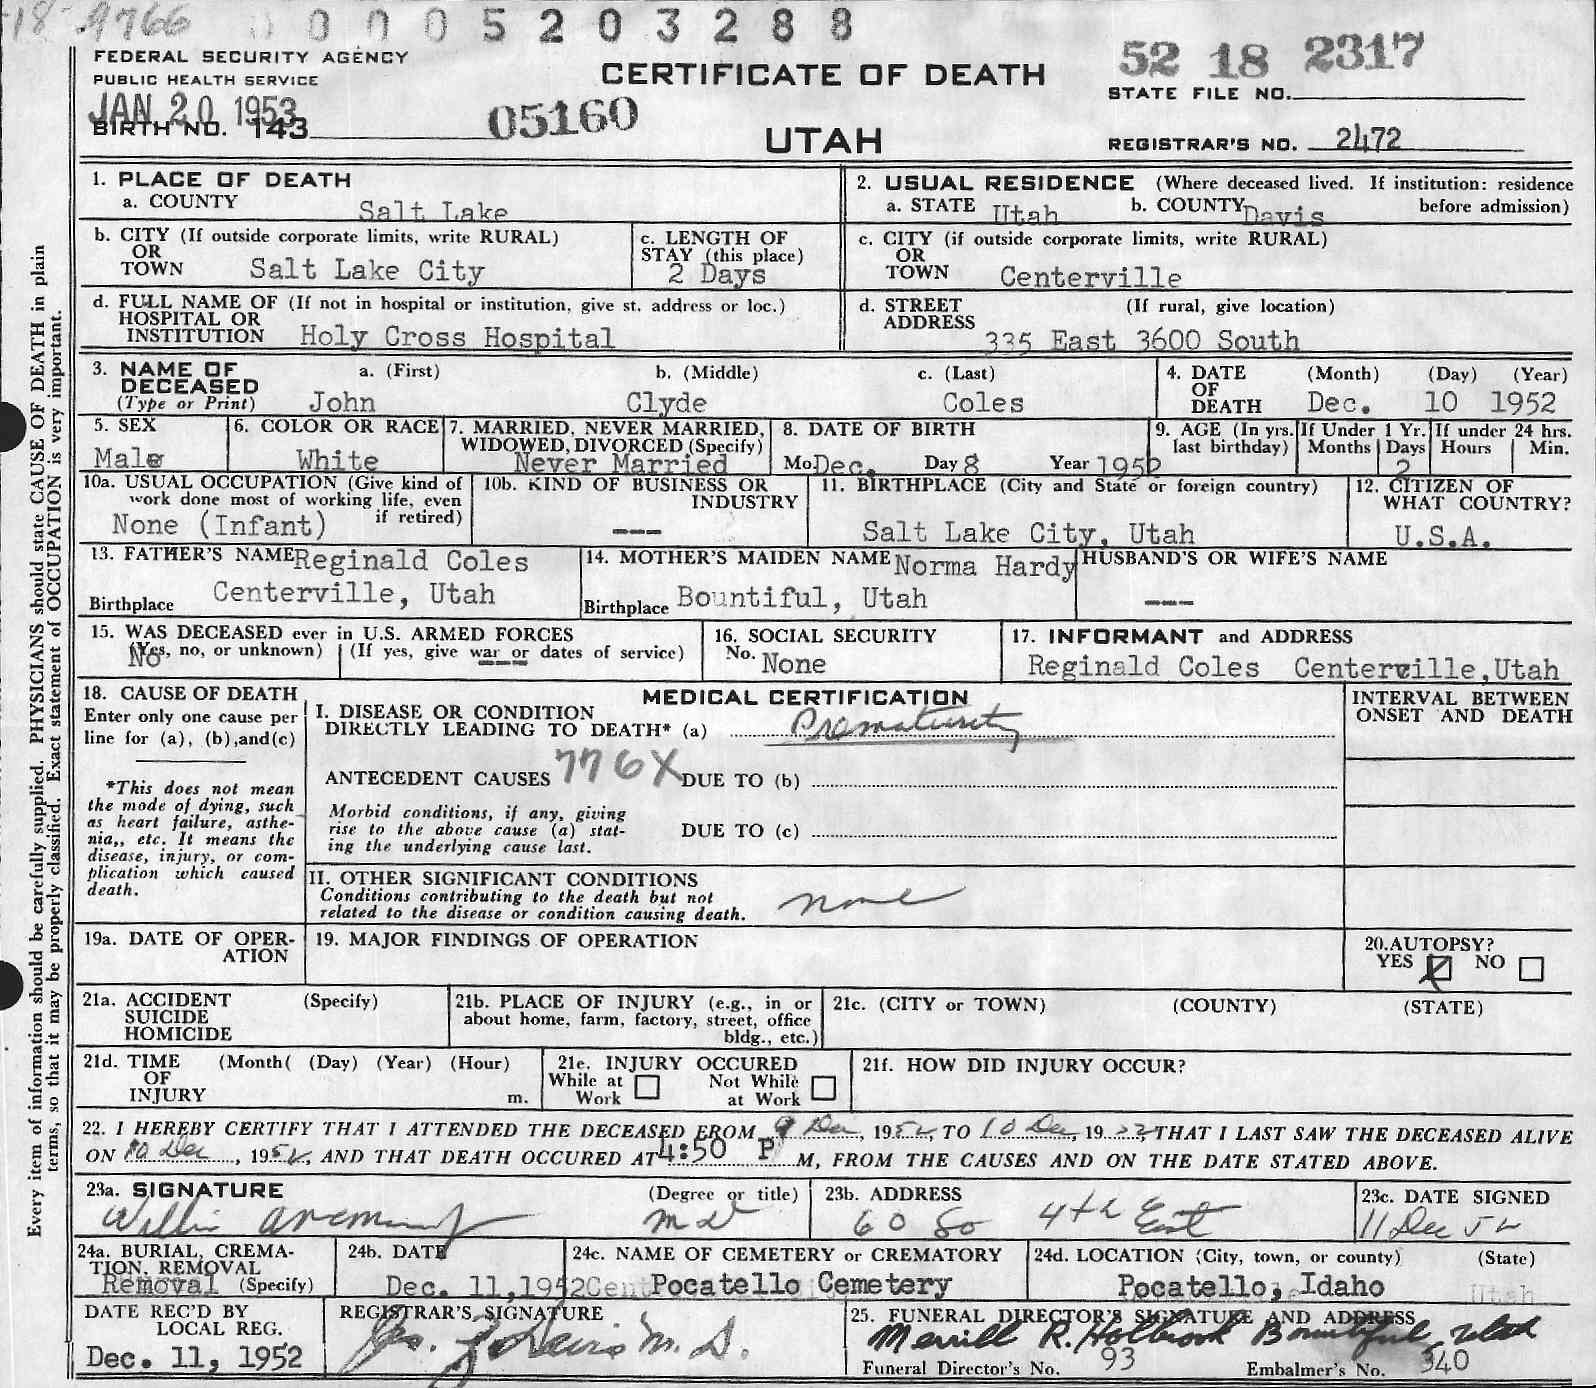 18 9766 0 0 0 5 2 0 3 2 8 8
FEDERAL SECURITY AGENCY
PUBLIC HEALTH SERVICE
CERTIFICATE OF DEATH
52 18 2317
STATE FILE NO.
JAN 20 1953
BIRTH NO. 143
05160
UTAH
REGISTRAR'S NO. 2472
1. PLACE OF DEATH
a. COUNTY Salt Lake
2. USUAL RESIDENCE (Where deceased lived. If institution: residence before admission)
a. STATE Utah b. COUNTY Davis
b. CITY (If outside corporate limits, write RURAL)
OR
TOWN Salt Lake City
c. LENGTH OF
STAY (this place)
2 Days
c. CITY (if outside corporate limits, write RURAL)
OR
TOWN Centerville
d. FULL NAME OF (If not in hospital or institution, give st. address or loc.)
HOSPITAL OR
INSTITUTION Holy Cross Hospital
d. STREET (If rural, give location)
ADDRESS 335 East 3600 South
3. NAME OF a. (First) b. (Middle) c. (Last)
DECEASED
(Type or Print) John Clyde Coles
4. DATE (Month) (Day) (Year)
OF
DEATH Dec. 10 1952
5. SEX
Male
6. COLOR OR RACE
White
7. MARRIED, NEVER MARRIED,
WIDOWED, DIVORCED (Specify)
Never Married
8. DATE OF BIRTH
Mo Dec. Day 8 Year 1952
9. AGE (In yrs. last birthday)
If Under 1 Yr. If under 24 hrs.
Months Days Hours Min.
2
10a. USUAL OCCUPATION (Give kind of
work done most of working life, even
if retired)
None (Infant)
10b. KIND OF BUSINESS OR
INDUSTRY
---
11. BIRTHPLACE (City and State or foreign country)
Salt Lake City, Utah
12. CITIZEN OF
WHAT COUNTRY?
U.S.A.
13. FATHER'S NAME Reginald Coles
Birthplace Centerville, Utah
14. MOTHER'S MAIDEN NAME Norma Hardy
Birthplace Bountiful, Utah
HUSBAND'S OR WIFE'S NAME
---
15. WAS DECEASED ever in U.S. ARMED FORCES
(Yes, no, or unknown) (If yes, give war or dates of service)
No ---
16. SOCIAL SECURITY
No. None
17. INFORMANT and ADDRESS
Reginald Coles Centerville, Utah
18. CAUSE OF DEATH
Enter only one cause per
line for (a), (b),and(c)
*This does not mean
the mode of dying, such
as heart failure, asthe-
nia,, etc. It means the
disease, injury, or com-
plication which caused
death.
MEDICAL CERTIFICATION
I. DISEASE OR CONDITION
DIRECTLY LEADING TO DEATH* (a) Prematurity
ANTECEDENT CAUSES 776X DUE TO (b)
Morbid conditions, if any, giving
rise to the above cause (a) stat-
ing the underlying cause last.
DUE TO (c)
II. OTHER SIGNIFICANT CONDITIONS
Conditions contributing to the death but not
related to the disease or condition causing death.
none
INTERVAL BETWEEN
ONSET AND DEATH
19a. DATE OF OPER-
ATION
19. MAJOR FINDINGS OF OPERATION
20.AUTOPSY?
YES NO
21a. ACCIDENT (Specify)
SUICIDE
HOMICIDE
21b. PLACE OF INJURY (e.g., in or
about home, farm, factory, street, office
bldg., etc.)
21c. (CITY or TOWN) (COUNTY) (STATE)
21d. TIME (Month( (Day) (Year) (Hour)
OF
INJURY m.
21e. INJURY OCCURED
While at Work Not While at Work
21f. HOW DID INJURY OCCUR?
22. I HEREBY CERTIFY THAT I ATTENDED THE DECEASED FROM 9 Dec, 1952, TO 10 Dec, 19 THAT I LAST SAW THE DECEASED ALIVE
ON 10 Dec, 1952, AND THAT DEATH OCCURED AT 4:50 P M, FROM THE CAUSES AND ON THE DATE STATED ABOVE.
23a. SIGNATURE (Degree or title)
MD
23b. ADDRESS
60 So 4th East
23c. DATE SIGNED
11 Dec 52
24a. BURIAL, CREMA-
TION, REMOVAL
Removal (Specify)
24b. DATE
Dec. 11, 1952
24c. NAME OF CEMETERY or CREMATORY
Pocatello Cemetery
24d. LOCATION (City, town, or county) (State)
Pocatello, Idaho Utah
DATE REC'D BY
LOCAL REG.
Dec. 11, 1952
REGISTRAR'S SIGNATURE
M.D.
25. FUNERAL DIRECTOR'S SIGNATURE AND ADDRESS
Merrill R. Holbrook Bountiful, Utah
Funeral Director's No. 93 Embalmer's No. 340
Every item of information should be carefully supplied. PHYSICIANS should state CAUSE OF DEATH in plain
terms, so that it may be properly classified. Exact statement of OCCUPATION is very important.